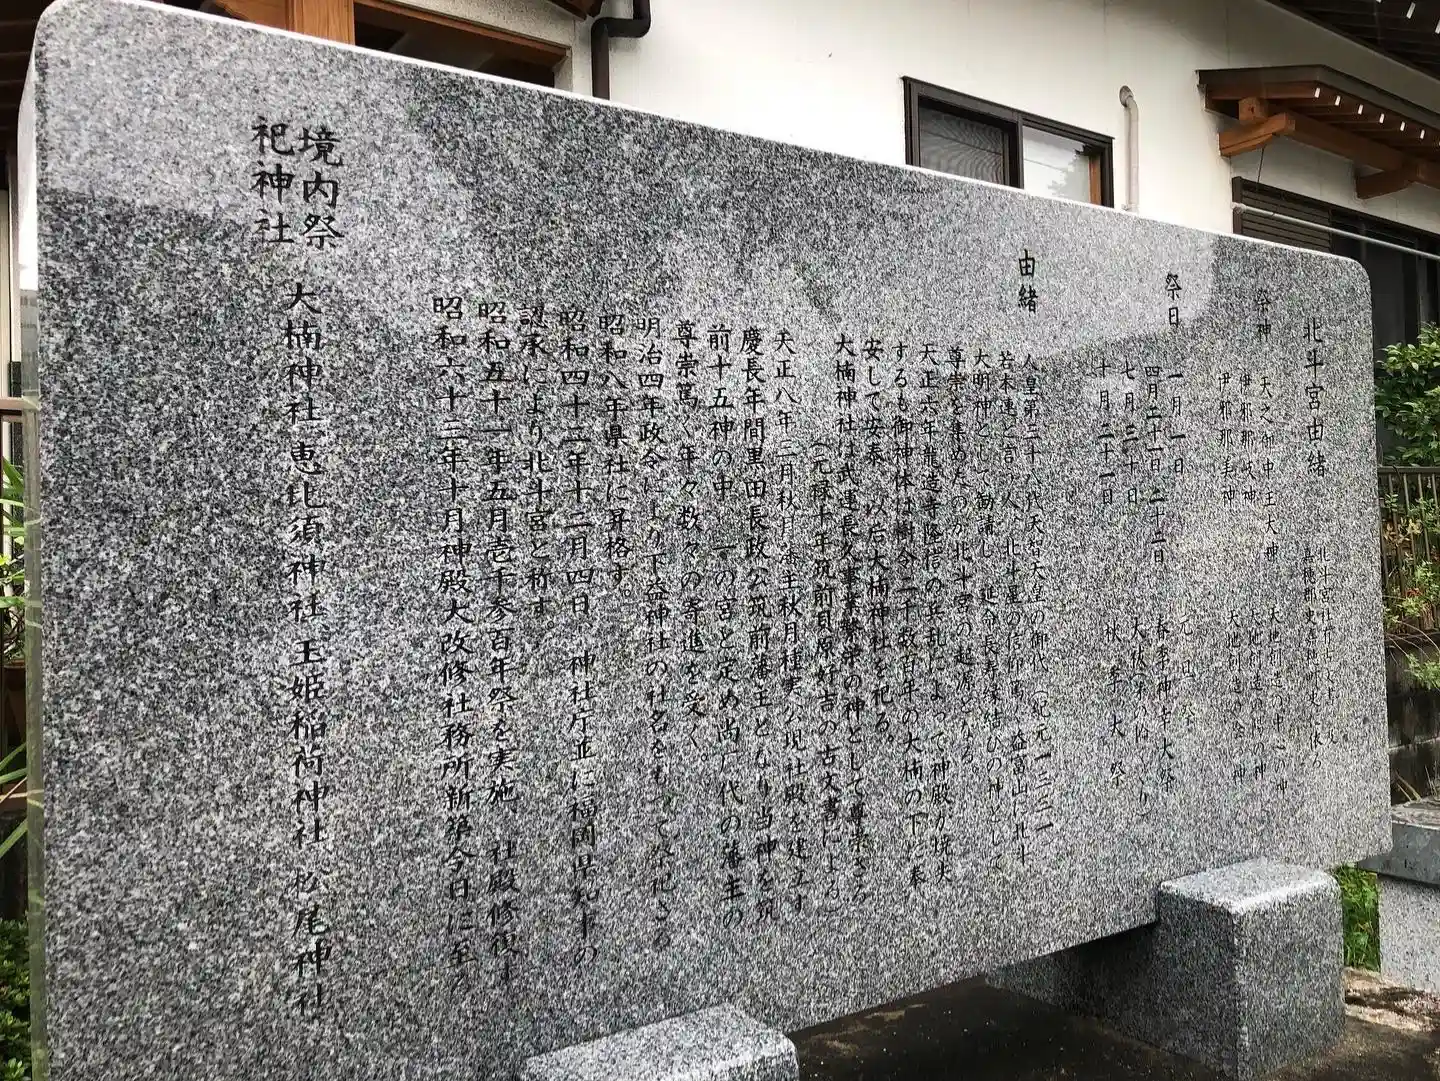 北斗宮由緒
祭神 天之御中主大神 大地創造の中心の神
伊邪那岐神 大地創造の陽の神
伊邪那美神 大地創造の陰神
祭日 一月一日 元旦祭
四月二十一日 二十二日 春季神幸大祭
七月三十日 大祓
十月二十一日 秋季大祭
由緒
人皇第三十八代天智天皇の御代(紀元一三二一
若木連と言う人、北斗星の信仰篤く益富山に北斗
大明神として勧請し、延命長寿縁結びの神として
尊崇を集めたのが北斗宮の起原となる。
天正六年龍造寺隆信の兵乱によって神殿が焼失
するも御神体は樹令二千数百年の大楠の下に奉
安して安泰、以后大楠神社を祀る。
大楠神社は武運長久事業繁栄の神として尊崇さる
(元禄十年筑前貝原好古の古文書による)
天正八年三月秋月藩主秋月種実公現社殿を建立す
慶長年間黒田長政公筑前藩主となり当神を筑
前十五神の中、一の宮と定め尚、代々の藩主の
尊崇篤く年々数々の寄進を受く
明治四年政令により下益神社の社名をもって祭祀さる
昭和八年県社に昇格す。
昭和四十三年十二月四日、神社庁並に福岡県知事の
認承により北斗宮と称す。
昭和五十一年五月壱千参百年祭を実施、社殿修復す
昭和六十三年十月神殿大改修社務所新築今日に至る
境内祭
祀神社 大楠神社 恵比須神社 玉姫稲荷神社 松尾神社